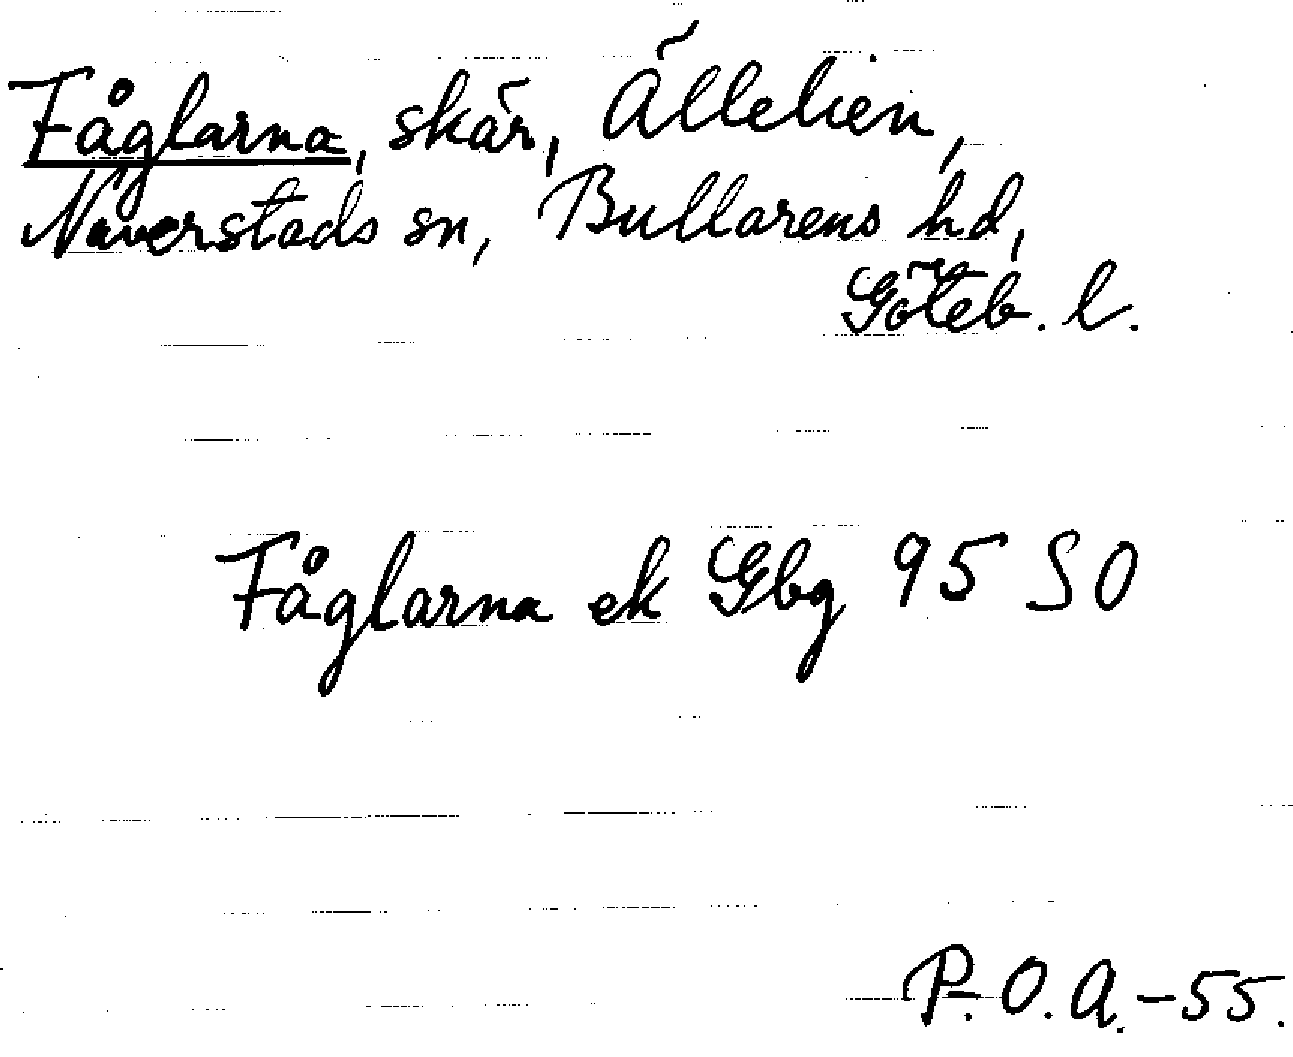 Fåglarna, skär, Ällelien,
Naverstads sn, Bullarens hd,
Göteb. l.
Fåglarna ek Gbg 95 SO
P.O.A.-55.